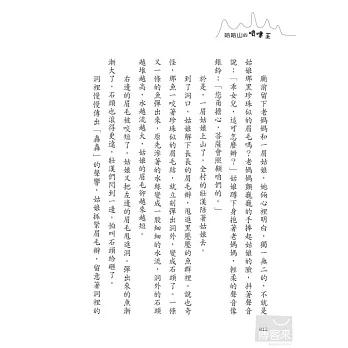 哈哈山的嘻嘩王
廟前留下老媽媽和一眉姑娘，她倆心裡明白，獨一無二的，不就是
姑娘那黑珍珠似的眉毛嗎？老媽媽顫巍巍的手捧起姑娘的臉，抖著聲音
說：「乖女兒，這可怎麼辦？」姑娘蹲下身抱著老媽媽，輕柔的聲音像
銀鈴：「您甭擔心，菩薩會照顧咱們的。」
於是，一眉姑娘上山了，全村的壯漢們陪著姑娘去。
到了洞口，姑娘解下長長的眉毛辮，甩進黑壓壓的魚群裡。說也奇
怪，那魚一咬著珍珠似的眉毛結，就立刻彈出洞外，變成石頭了。一條
又一條的魚彈出來，原先滲著的水經變成一股細細的水流，洞外的石頭
越堆越高，水越流越大，姑娘的眉毛卻越來越短。
右邊的眉毛被咬短了，姑娘又把左邊的眉毛甩進洞。彈出來的魚漸
漸大了，石頭也滾得更遠，壯漢們閃到一邊，怕叫石頭給砸了。
洞裡慢慢傳出「轟轟」的聲響，姑娘抓緊眉毛辮，留意著洞裡的
012
博客來